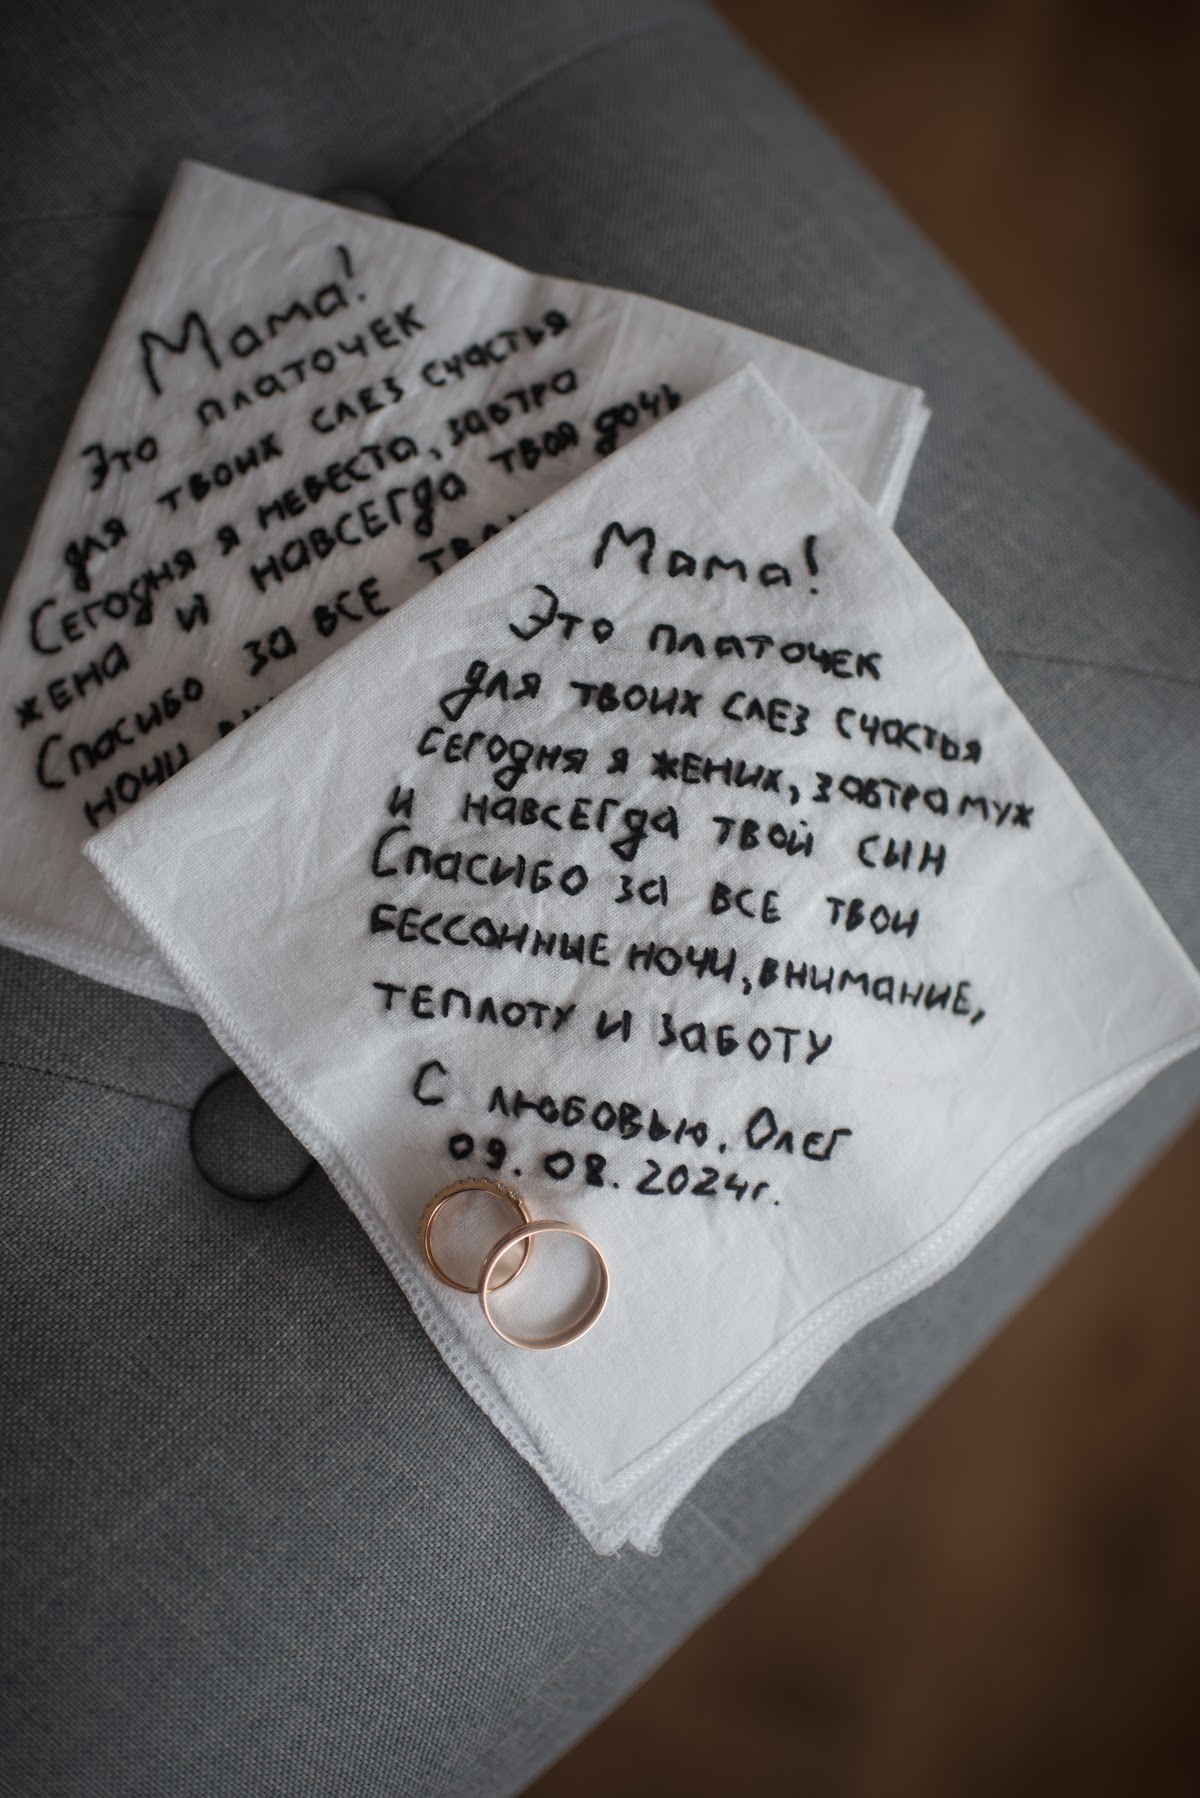 Мама!
Это платочек
для твоих слез счастья
Сегодня я невеста, завтра
жена и навсегда твоя дочь
Спасибо за все
ночи
Мама!
Это платочек
для твоих слез счастья
сегодня я жених, завтра муж
и навсегда твой сын
Спасибо за все твои
бессонные ночи, внимание,
теплоту и заботу
С любовью, Олег
09.08.2024г.